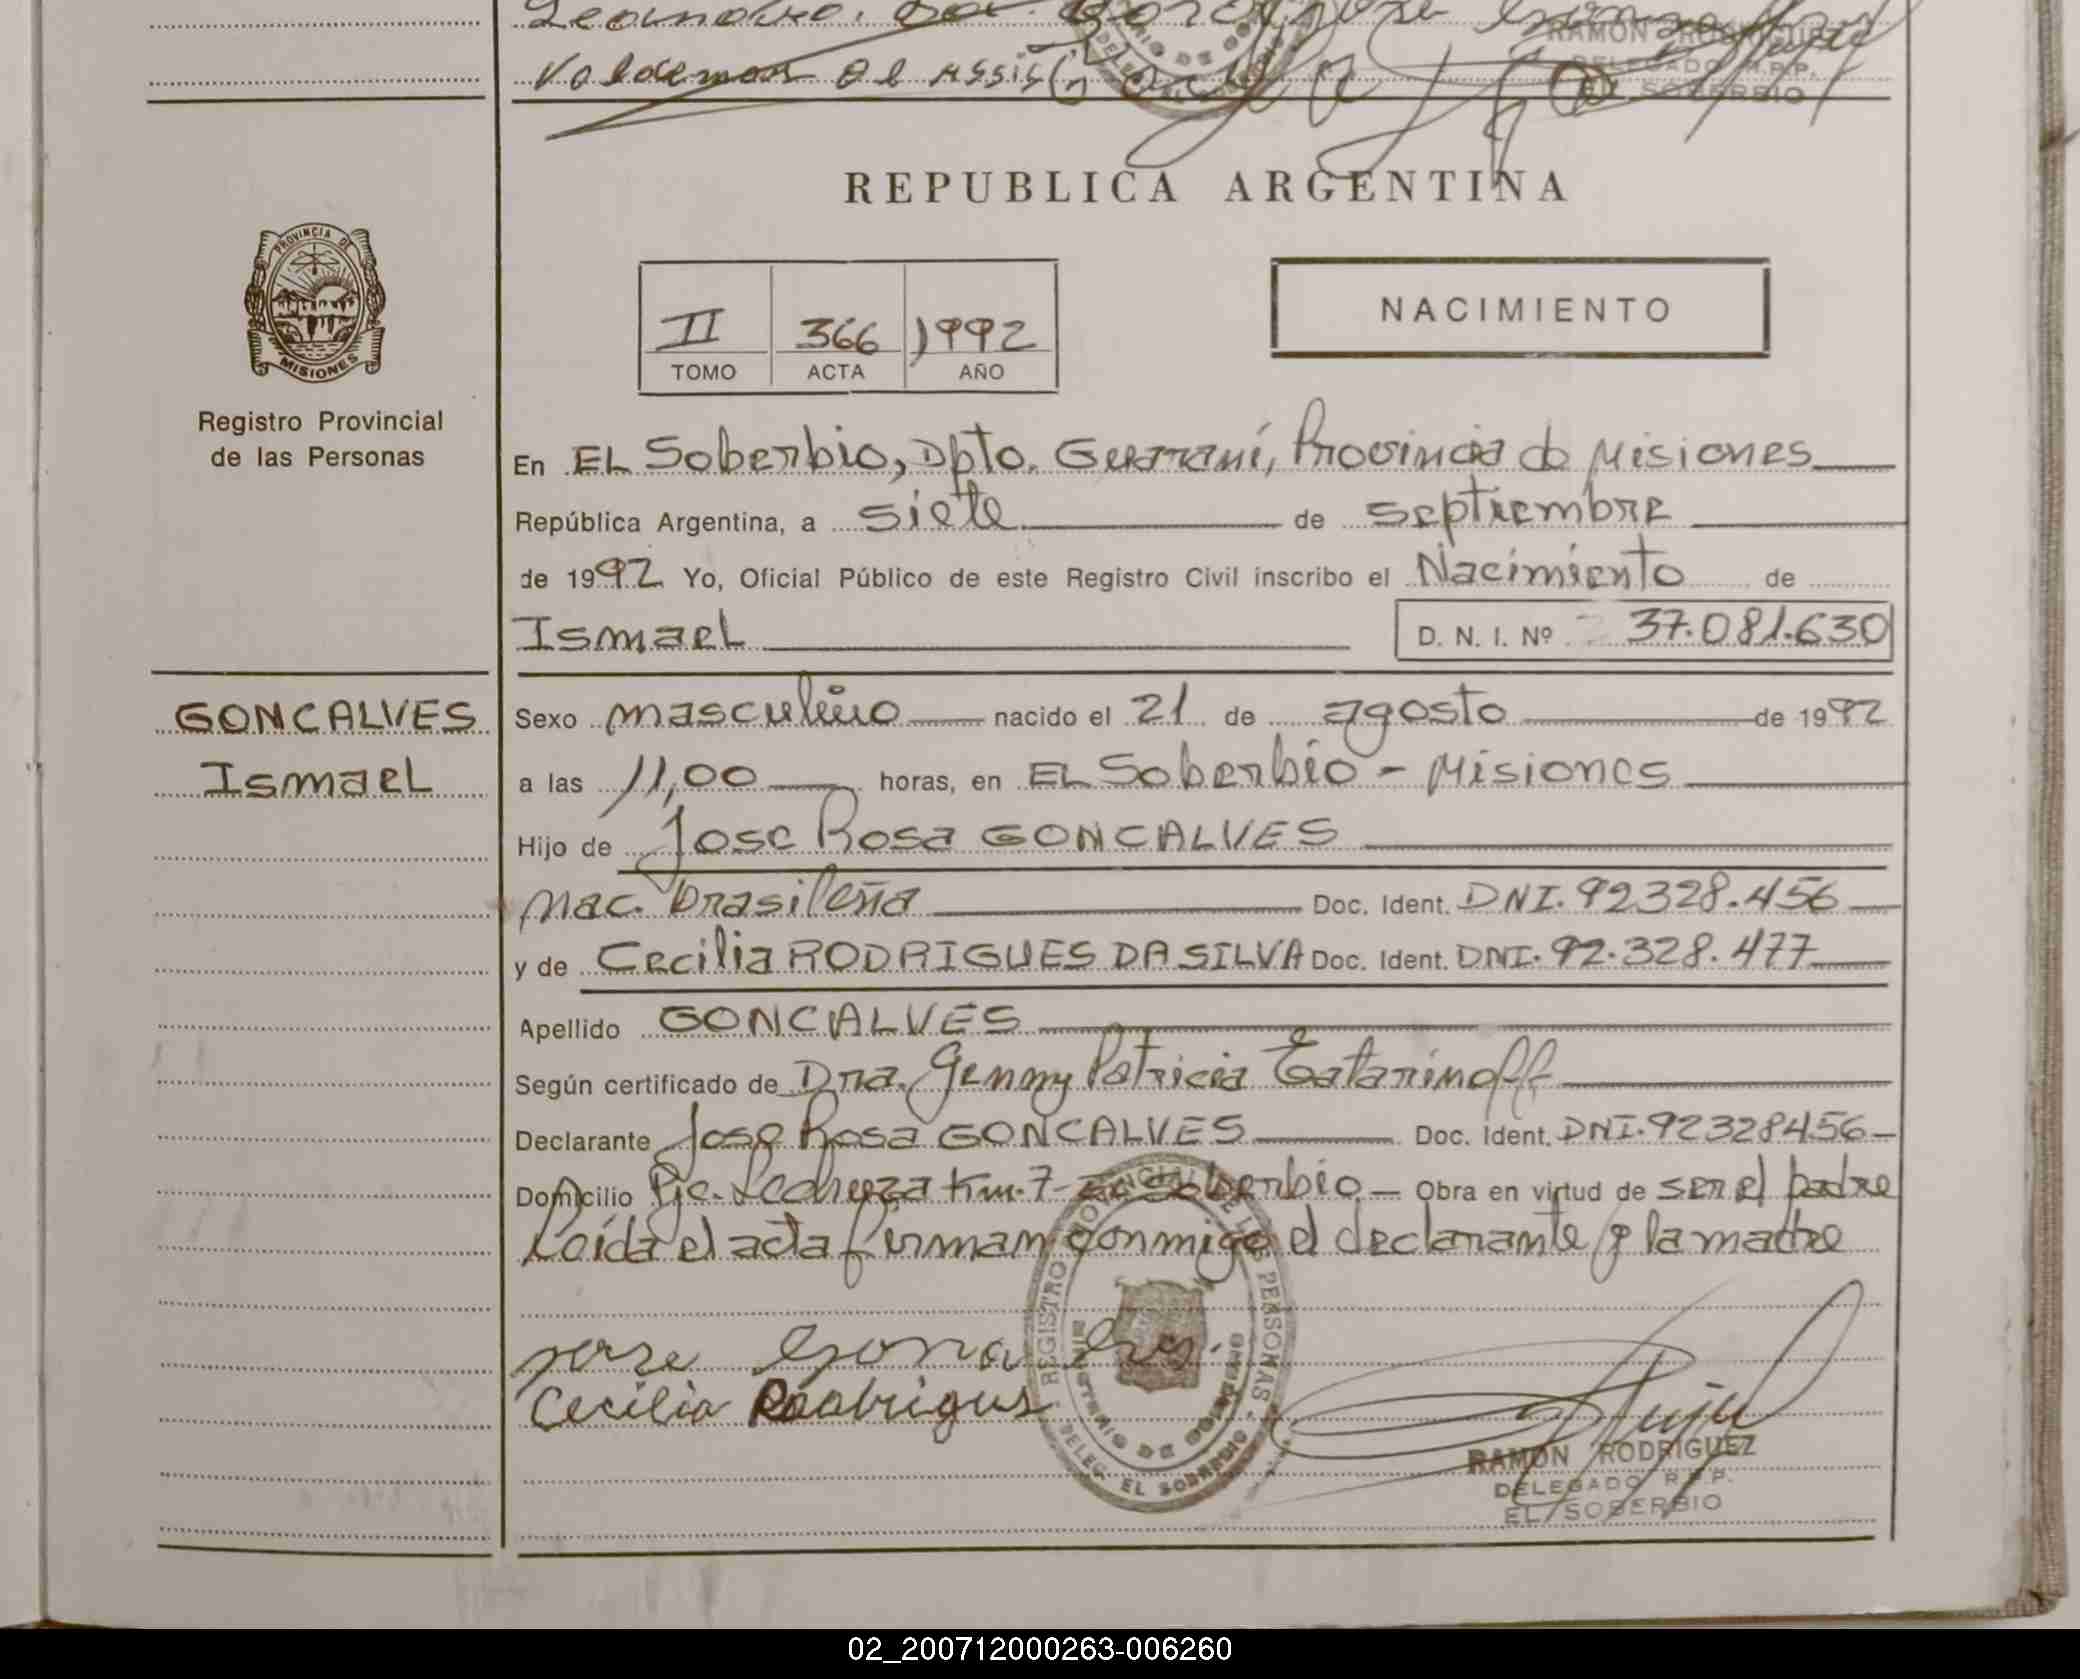 Valdemar
REPUBLICA ARGENTINA
PROVINCIA DE
MISIONES
Registro Provincial
de las Personas
II 366 1992
TOMO ACTA AÑO
NACIMIENTO
En EL Soberbio, Dpto. Guaraní, Provincia de Misiones
República Argentina, a siete de septiembre
de 1992 Yo, Oficial Público de este Registro Civil inscribo el Nacimiento de
Ismael D. N. I. Nº 37.081.630
GONCALVES
Ismael
Sexo masculino nacido el 21 de agosto de 1992
a las 11,00 horas, en EL Soberbio - Misiones
Hijo de Jose Rosa GONCALVES
nac. brasileña Doc. Ident. DNI. 92328.456
y de Cecilia RODRIGUES DA SILVA Doc. Ident. DNI. 92.328.477
Apellido GONCALVES
Según certificado de Dra. Genny Patricia Tatarinoff
Declarante Jose Rosa GONCALVES Doc. Ident. DNI. 92328456
Domicilio Pje. Km. 7 - El Soberbio. Obra en virtud de ser el padre
Leída el acta firman conmigo el declarante y la madre
jose
Cecilia Rodrigus
REGISTRO PROVINCIAL DE LAS PERSONAS
MINISTERIO DE GOBIERNO
DELEG. EL SOBERBIO
RAMON RODRIGUEZ
DELEGADO R.P.P.
EL SOBERBIO
RAMON RODRIGUEZ
DELEGADO R.P.P.
EL SOBERBIO
02_200712000263-006260